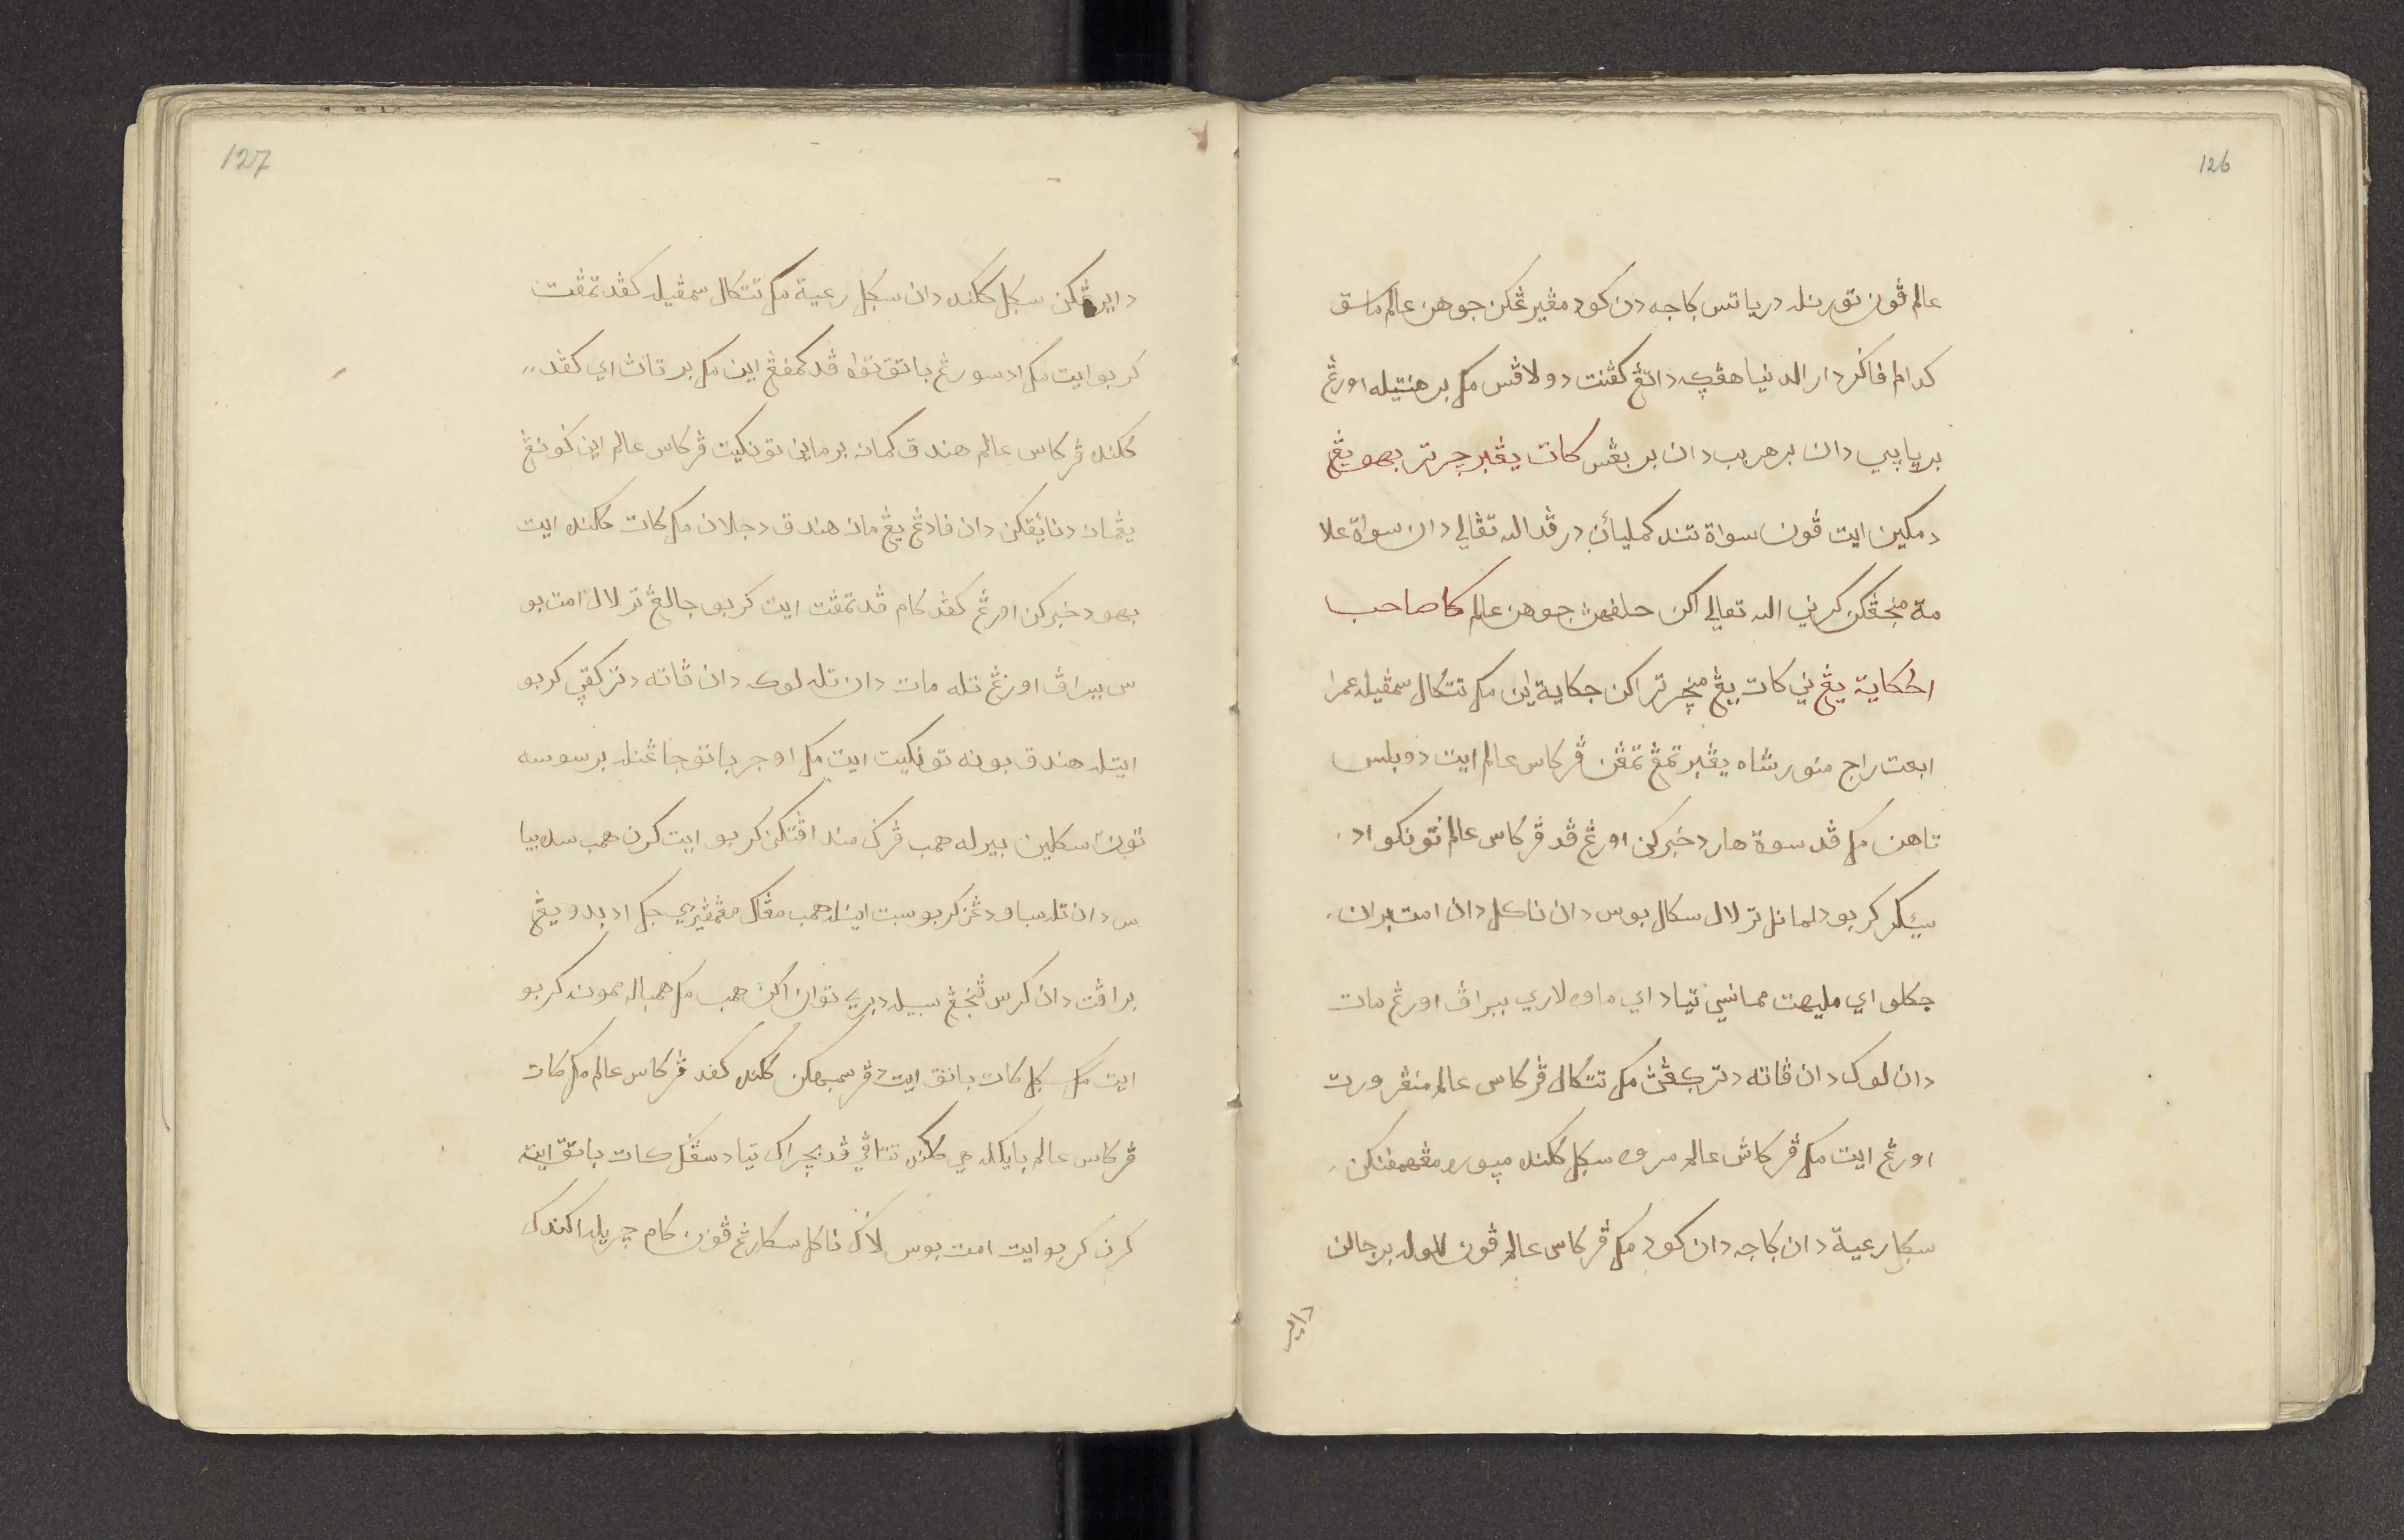 126
عالم ڤون تورنله درياتس ݢاجه دن كود مڠيرڠكن جوهن عالم ماسق
كدالم فاݢر دار الدنيا هڤڬ داتڠ كڤنت دولاڤس مك برهنتيله اورڠ
برباڽي دان برهرب دان بربڠس كات يڠبرچرتر بهو يڠ
دمكين ايت ڤون سواة تند كمليأن درڤد الله تعالي دان سواة علا
مة منجڤكن كرني الله تعالي اكن حليفهڽ جوهن عالم كات صاحب
الحكاية يڠ ڤي كات يڠ منچرترا اكن حكاية اين مك تتكال سمڤيله عمرا
ابعت راج منور شاه يڠبرتمڤ تمڤن ڤركاس عالم ايت دوبلس
تاهن مك ڤد سوة هار دخبركن اورڠ ڤد ڤركاس عالم تونكو اد
سيئكر كربو دلمانل ترلال سكال بوس دان ناكل دان امت بران
جكلو اي مليهت ممانسي تياد اي ماو لاري ببراڤ اورڠ مات
دان لوك دان ڤاته دتركڤڽ مك تتكال ڤركاس عالم منڠر ورت
اورڠ ايت مك ڤركاس عالم مروه سكل كلنده مڽوره مڠهمفنكن
سكل رعية دان ݢاجه دان كود مك ڤركاس عالم ڤون لاوله برجالن
داير
127
دايرڠكن سكل كلنده دان سكل رعية مك تتكال سمڤيله كڤد تمڤت
كربو ايت مك اد سورڠ باتق توا ڤد كمڤڠ اين مك برتاڽ اي كڤد
كلنده ڤركاس عالم هندق كمان برماين تونكيت ڤركاس عالم اين ݢونڠ
يڠمان دنائيقكن دان ڤادڠ يڠ مان هندق دجلان مك كات كلنده ايت
بهو دخبركن اورڠ كڤد كام ڤد تمڤت ايت كربو جالڠ ترلال امت بو
س ببراڤ اورڠ تله مات دان تله لوك دان ڤاته دتركڤڽ كربو
ايتله هندق بونه تونكيت ايت مك اوجر باتق جاڠنله برسوسه
توبن سكلين بيرله همب ڤرݢ منداڤتكن كربو ايت كرن همب سده بيا
س دان تله ساود دڠن كربو سبت اينله همب مڠاكو مڠمڤيري جك اد بدو يڠ
براڤت دان كرس ڤنجڠ سبيله دبري توان اكن همب مك همباله ممونه كربو
ايت مك سكل كات باتق ايت دڤرسمبهكن كلنده كڤد ڤركاس عالم مك كات
ڤركاس عالم بايكله هي كلنده تتاڤي ڤد بچراك تياد سڠݢ كات باتق ايت
كرن كربو ايت امت بوس لاݢ ناكل سكارڠ ڤون كام چريله اكندك